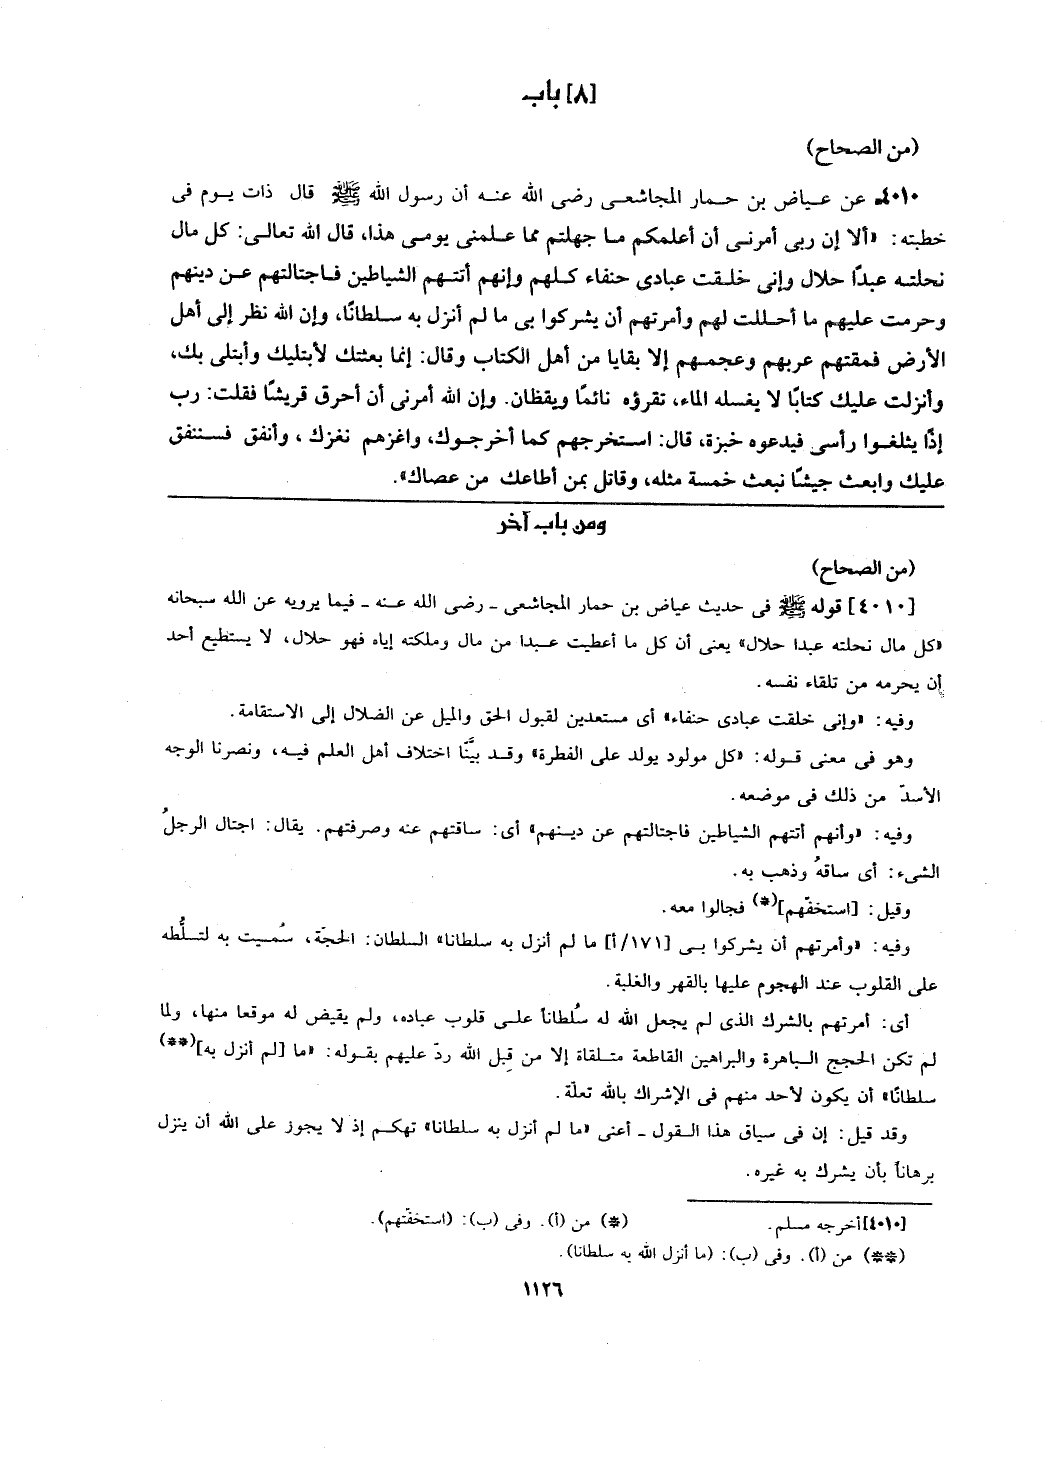 [٨] باب
(من الصحاح)
٤٠١٠ـ عن عياض بن حمار المجاشعى رضى الله عنه أن رسول الله ﷺ قال ذات يوم فى
خطبته: «ألا إن ربى أمرنى أن أعلمكم ما جهلتم مما علمنى يومى هذا، قال الله تعالى: كل مال
نحلته عبدًا حلال وإنى خلقت عبادى حنفاء كلهم وإنهم أتتهم الشياطين فاجتالتهم عن دينهم
وحرمت عليهم ما أحللت لهم وأمرتهم أن يشركوا بى ما لم أنزل به سلطانًا، وإن الله نظر إلى أهل
الأرض فمقتهم عربهم وعجمهم إلا بقايا من أهل الكتاب وقال: إنما بعثتك لأبتليك وأبتلى بك،
وأنزلت عليك كتابًا لا يغسله الماء، تقرؤه نائمًا ويقظان. وإن الله أمرنى أن أحرق قريشًا فقلت: رب
إذًا يثلغوا رأسى فيدعوه خبزة، قال: استخرجهم كما أخرجوك، واغزهم نغزك، وأنفق فسننفق
عليك وابعث جيشًا نبعث خمسة مثله، وقاتل بمن أطاعك من عصاك».
ومن باب آخر
(من الصحاح)
[٤٠١٠] قوله ﷺ فى حديث عياض بن حمار المجاشعى ـ رضى الله عنه ـ فيما يرويه عن الله سبحانه
«كل مال نحلته عبدا حلال» يعنى أن كل ما أعطيت عبدا من مال وملكته إياه فهو حلال، لا يستطيع أحد
أن يحرمه من تلقاء نفسه.
وفيه: «وإنى خلقت عبادى حنفاء» أى مستعدين لقبول الحق والميل عن الضلال إلى الاستقامة.
وهو فى معنى قوله: «كل مولود يولد على الفطرة» وقد بيَّنّا اختلاف أهل العلم فيه، ونصرنا الوجه
الأسدّ من ذلك فى موضعه.
وفيه: «وأنهم أتتهم الشياطين فاجتالتهم عن دينهم» أى: ساقتهم عنه وصرفتهم. يقال: اجتال الرجلُ
الشىء: أى ساقهُ وذهب به.
وقيل: [استخفّهم](*) فجالوا معه.
وفيه: «وأمرتهم أن يشركوا بى [١٧١/أ] ما لم أنزل به سلطانا» السلطان: الحجّة، سُميت به لتسلُّطه
على القلوب عند الهجوم عليها بالقهر والغلبة.
أى: أمرتهم بالشرك الذى لم يجعل الله له سُلطاناً على قلوب عباده، ولم يقيض له موقعا منها، ولما
لم تكن الحجج الباهرة والبراهين القاطعة متلقاة إلا من قِبل الله ردّ عليهم بقوله: «ما [لم أنزل به](**)
سلطانًا» أن يكون لأحد منهم فى الإشراك بالله تعلّة.
وقد قيل: إن فى سياق هذا القول ـ أعنى «ما لم أنزل به سلطانا» تهكم إذ لا يجوز على الله أن ينزل
برهاناً بأن يشرك به غيره.
[٤٠١٠] أخرجه مسلم. (*) من (أ). وفى (ب): (استخفّتهم).
(**) من (أ). وفى (ب): (ما أنزل الله به سلطانا).
١١٢٦